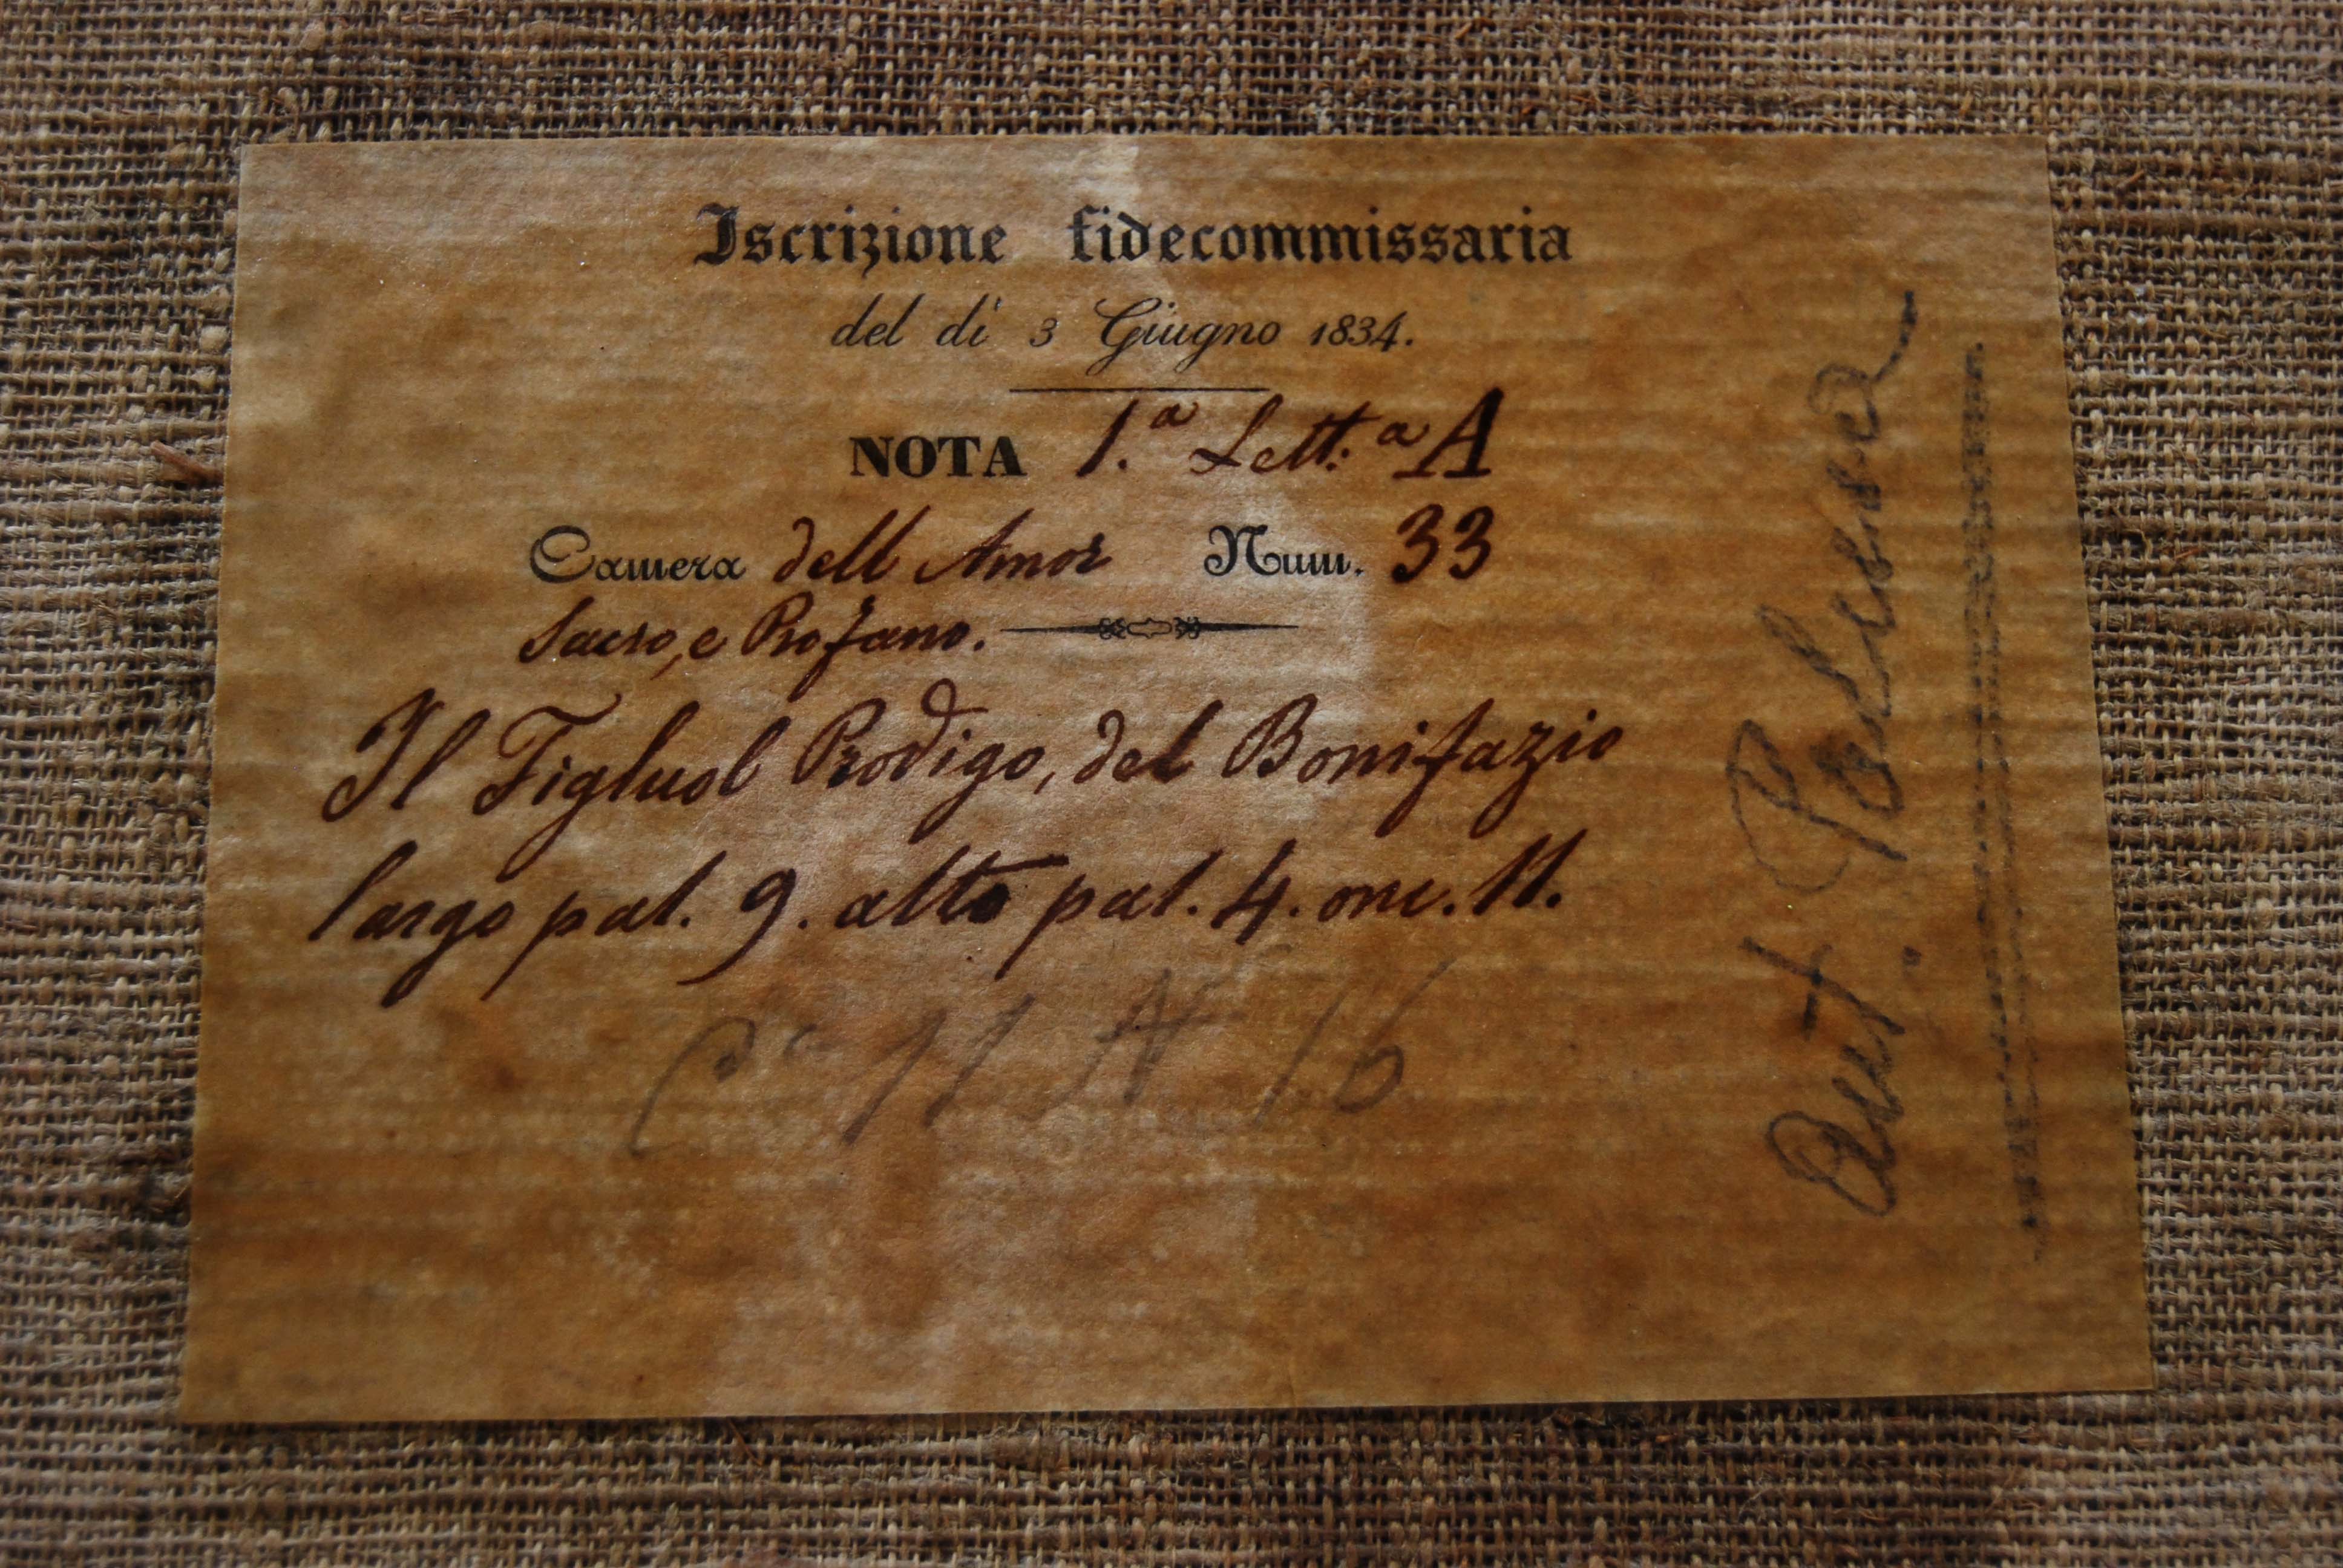 Iscrizione fidecommissaria
del dì 3 Giugno 1834.
NOTA 1.ª Lett:ª A
Camera dell Amor Num. 33
Sacro, e Profano.
Il Figluol Prodigo, del Bonifazio
largo pal. 9. alto pal. 4. onc. 11.
11 N 16
Aut.